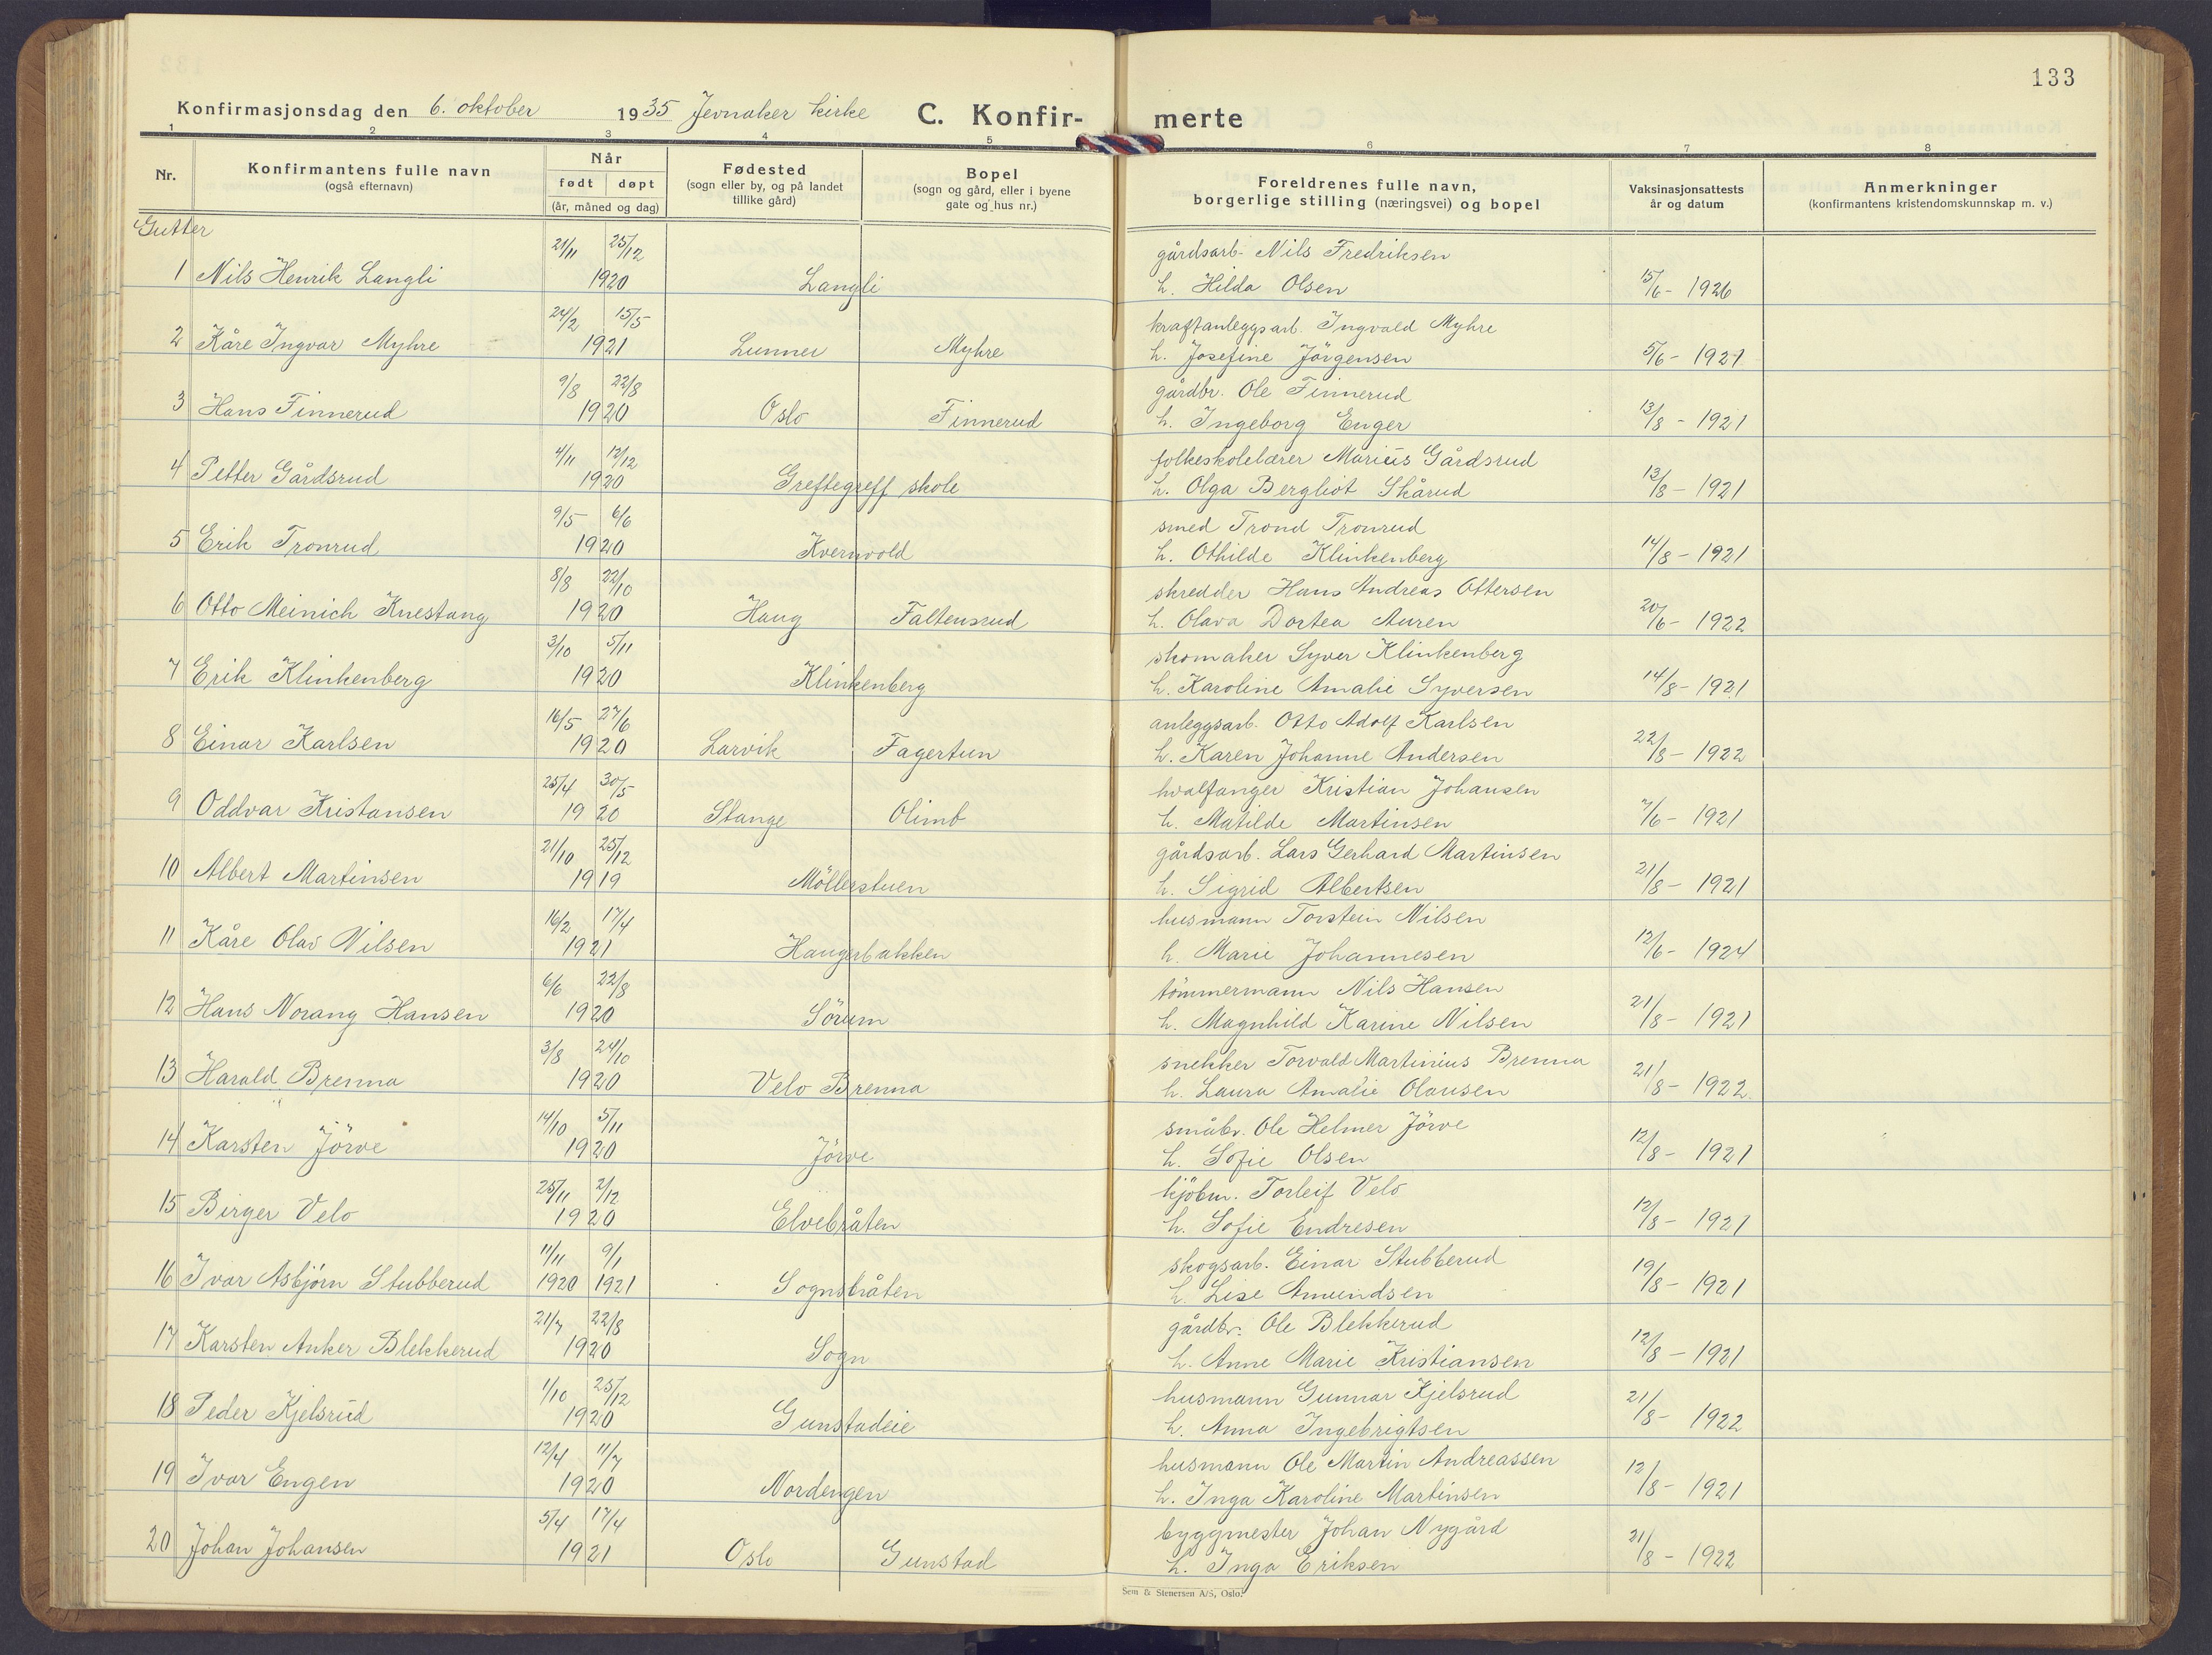 133
Konfirmasjonsdag den 6. oktober 1935 Jevnaker kirke C. Konfir- merte
1 2 3 4 5 6 7 8
Nr. Konfirmantens fulle navn (også efternavn) Når født døpt (år, måned og dag) Fødested (sogn eller by, og på landet tillike gård) Bopel (sogn og gård, eller i byene gate og hus nr.) Foreldrenes fulle navn, borgerlige stilling (næringsvei) og bopel Vaksinasjonsattests år og datum Anmerkninger (konfirmantens kristendomskunnskap m. v.)
Gutter
21/11 25/12 gårdsarb. Nils Fredriksen
1 Nils Henrik Langli 1920 Langli h. Hilda Olsen 15/6 - 1926
24/2 15/5 kraftanleggsarb. Ingvald Myhre
2 Kåre Ingvar Myhre 1921 Lunner Myhre h. Josefine Jörgensen 5/6 - 1921
9/8 22/8 gårdbr. Ole Finnerud
3 Hans Finnerud 1920 Oslo Finnerud h. Ingeborg Enger 13/8 - 1921
4/11 12/12 folkeskolelærer Marius Gårdsrud
4 Petter Gårdsrud 1920 Greftegreff skole h. Olga Bergliot Skårud 13/8 - 1921
9/5 6/6 smed Trond Tronrud
5 Erik Tronrud 1920 Kvernvold h. Othilde Klinkenberg 14/8 - 1921
8/8 22/10 skredder Hans Andreas Ottersen
6 Otto Meinich Knestang 1920 Haug Faltensrud h. Olava Dortea Auren 20/6 - 1922
3/10 5/11 skomaker Syver Klinkenberg
7 Erik Klinkenberg 1920 Klinkenberg h. Karoline Amalie Syversen 14/8 - 1921
16/5 27/6 anleggsarb. Otto Adolf Karlsen
8 Einar Karlsen 1920 Larvik Fagertun h. Karen Johanne Andersen 22/8 - 1922
25/4 30/5 hvalfanger Kristian Johansen
9 Oddvar Kristansen 1920 Stange Olimb h. Matilde Martinsen 7/6 - 1921
21/10 25/12 gårdsarb. Lars Gerhard Martinsen
10 Albert Martinsen 1919 Möllerstuen h. Sigrid Albertsen 21/8 - 1921
16/2 17/4 husmann Torstein Nilsen
11 Kåre Olav Nilsen 1921 Haugerbakken h. Marie Johannesen 12/6 - 1924
6/6 22/8 tömmermann Nils Hansen
12 Hans Norang Hansen 1920 Sörum h. Magnhild Karine Nilsen 21/8 - 1921
3/8 24/10 snekker Torvald Martinius Brenna
13 Harald Brenna 1920 Velo Brenna h. Laura Amalie Olausen 21/8 - 1922
14/10 5/11 småbr. Ole Helmer Jörve
14 Karsten Jörve 1920 Jörve h. Sofie Olsen 12/8 - 1921
25/11 2/12 kjöbm. Torleif Velo
15 Birger Velo 1920 Elvebråten h. Sofie Endresen 12/8 - 1921
11/11 9/1 skogsarb. Einar Stubberud
16 Ivar Asbjörn Stubberud 1920 1921 Sognsbråten h. Lise Amundsen 19/8 - 1921
21/7 22/8 gårdbr. Ole Blekkerud
17 Karsten Anker Blekkerud 1920 Sogn h. Anne Marie Kristiansen 12/8 - 1921
1/10 25/12 husmann Gunnar Kjelsrud
18 Peder Kjelsrud 1920 Gunstadeie h. Anna Ingebrigtsen 21/8 - 1922
12/4 11/7 husmann Ole Martin Andreassen
19 Ivar Engen 1920 Nordengen h. Inga Karoline Martinsen 12/8 - 1921
5/4 17/4 byggmester Johan Nygård
20 Johan Johansen 1921 Oslo Gunstad h. Inga Eriksen 21/8 - 1922
Sem & Stenersen A/S, Oslo.